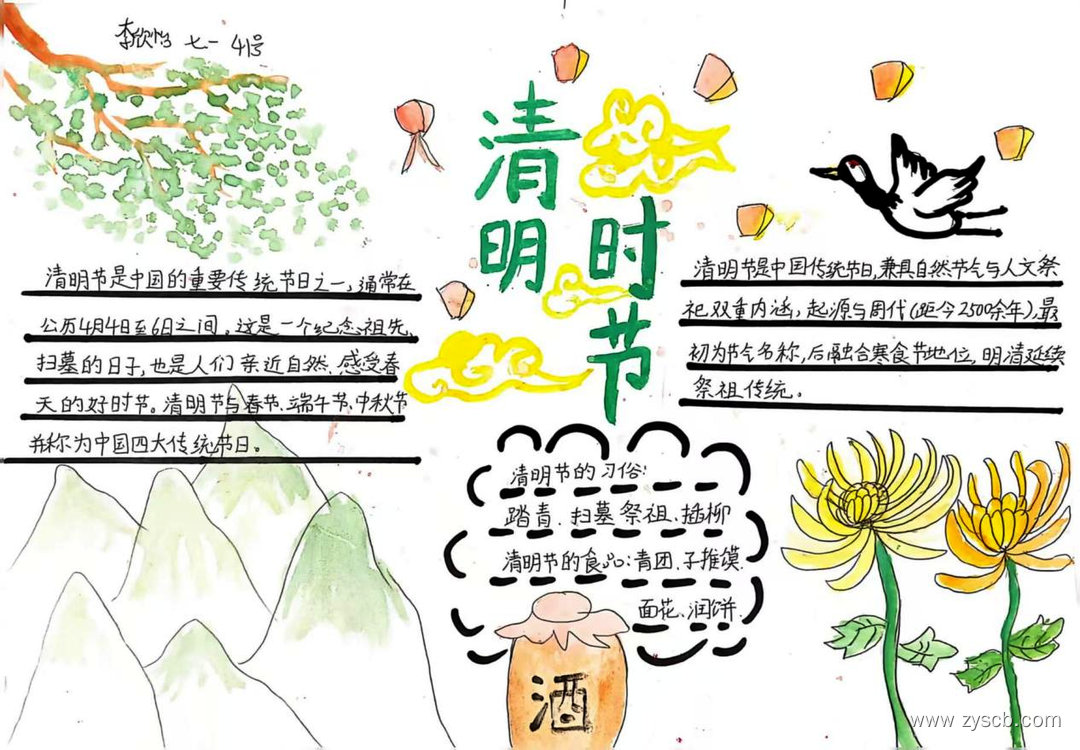 李欣怡 七一 41号
清明
时节
清明节是中国的重要传统节日之一,通常在
公历4月4日至6日之间。这是一个纪念祖先,
扫墓的日子,也是人们亲近自然、感受春
天的好时节。清明节与春节、端午节、中秋节
并称为中国四大传统节日。
清明节是中国传统节日,兼具自然节气与人文祭
祀双重内涵,起源与周代(距今2500余年),最
初为节气名称,后融合寒食节地位,明清延续
祭祖传统。
清明节的习俗:
踏青、扫墓祭祖、插柳
清明节的食品:青团、子推馍、
面花、润饼.
酒
www.zyscb.com